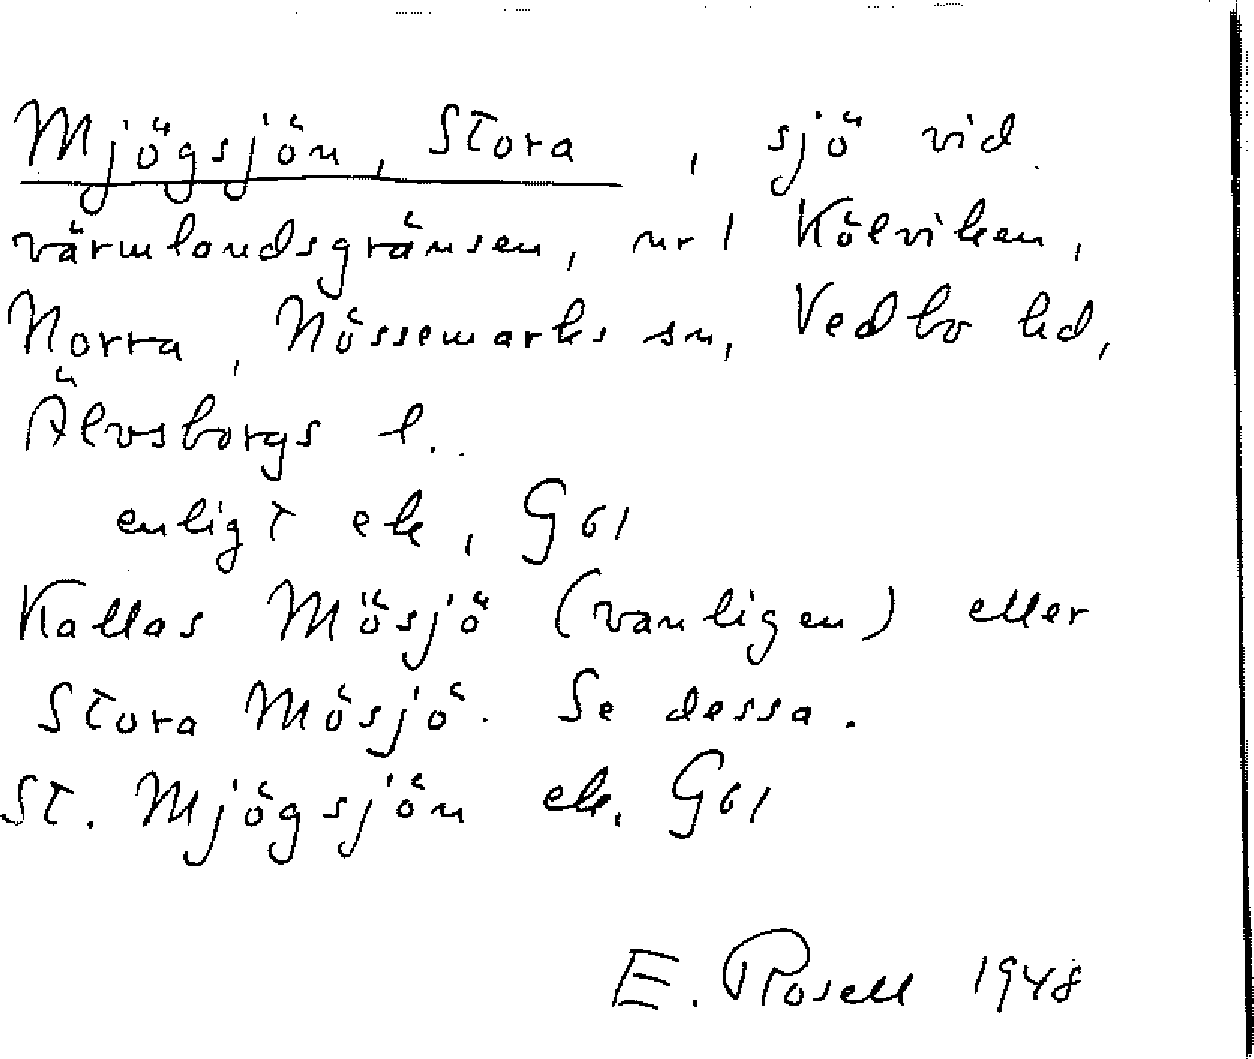 Mjögsjön, Stora, sjö vid
värmlandsgränsen, nr 1 Kölviken,
Norra, Nössemarks sn, Vedbo hd,
Älvsborgs l.
enligt ek, G61
Kallas Mösjö (vanligen) eller
Stora Mösjö. Se dessa.
St. Mjögsjön ek. G61
E. Rosell 1948